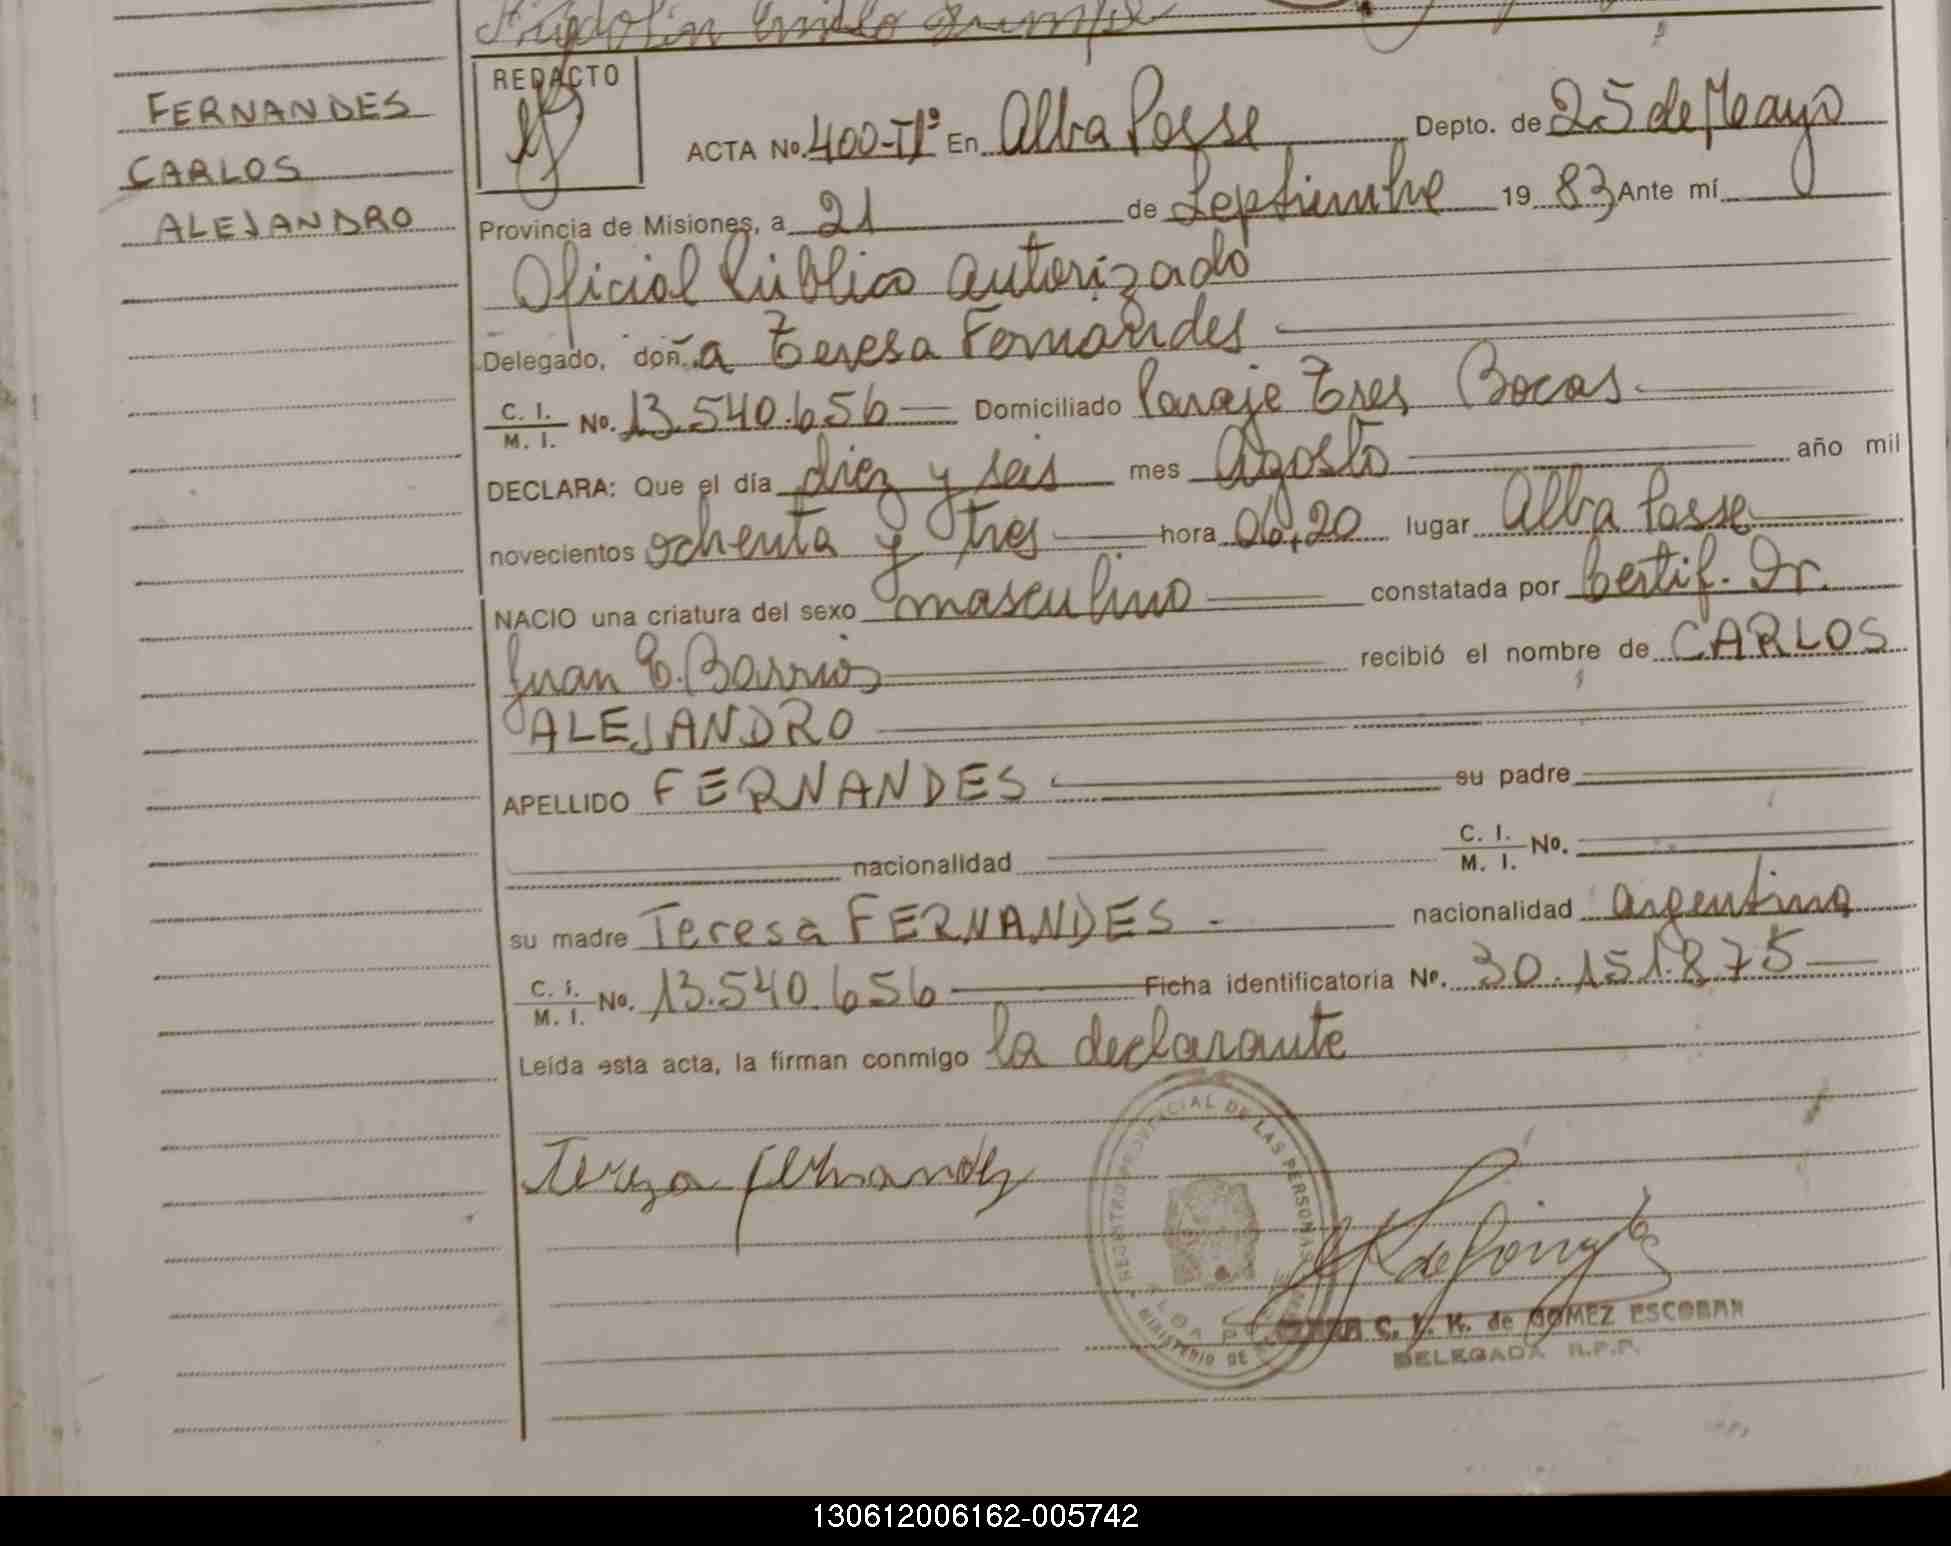 FERNANDES
CARLOS
ALEJANDRO
REDACTO
ACTA No. 400-Tº En Alba Posse Depto. de 25 de Mayo
Provincia de Misiones, a 21 de Septiembre 1983 Ante mí
Oficial Público autorizado
Delegado, doña Teresa Fernandes
C. I. / M. I. No. 13.540.656 Domiciliado Paraje Tres Bocas
DECLARA: Que el día diez y seis mes Agosto año mil
novecientos ochenta y tres hora 06,20 lugar Alba Posse
NACIO una criatura del sexo masculino constatada por Certif. Dr.
Juan E. Barrios recibió el nombre de CARLOS
ALEJANDRO
APELLIDO FERNANDES su padre
nacionalidad C. I. / M. I. No.
su madre Teresa FERNANDES - nacionalidad argentina
C. I. / M. I. No. 13.540.656 Ficha identificatoria No. 30.151.875
Leída esta acta, la firman conmigo la declarante
Tereza Fernandes
REGISTRO PROVINCIAL DE LAS PERSONAS
MINISTERIO DE
C. I. K. de GOMEZ ESCOBAR
DELEGADA R.P.P.
130612006162-005742